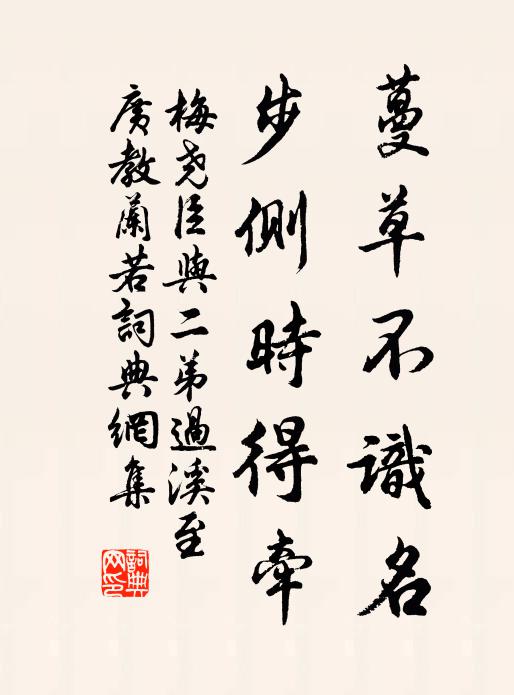 蔓草不識名
步側時得牽
梅堯臣與二弟過溪至
廣教蘭若詞典網集
詞典
网印